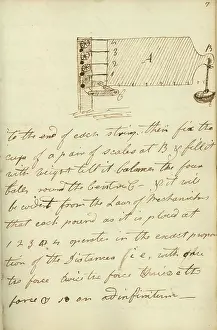 7
4
3
2
1
A
B
C
to the end of each string, then fix the
cup of a pair of scales at B & fill it
with weight till it balances the four
round the C & it will
be evident from the Laws of Mechanics
that each pound as it is placed at
1 2 3 or 4 operates in the exact propor
tion of the distances i.e. with once
the force twice the force thrice the
force & so on ad infinitum